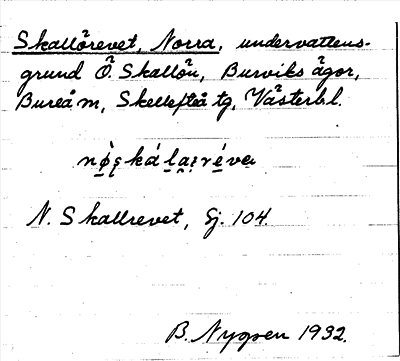 Skallörevet, Norra, undervattens-
grund Ö. Skallön, Burviks ägor,
Bureå m, Skellefteå tg, Västerb l.
N. Skallrevet, Sj. 104.
B. Nygren 1932.